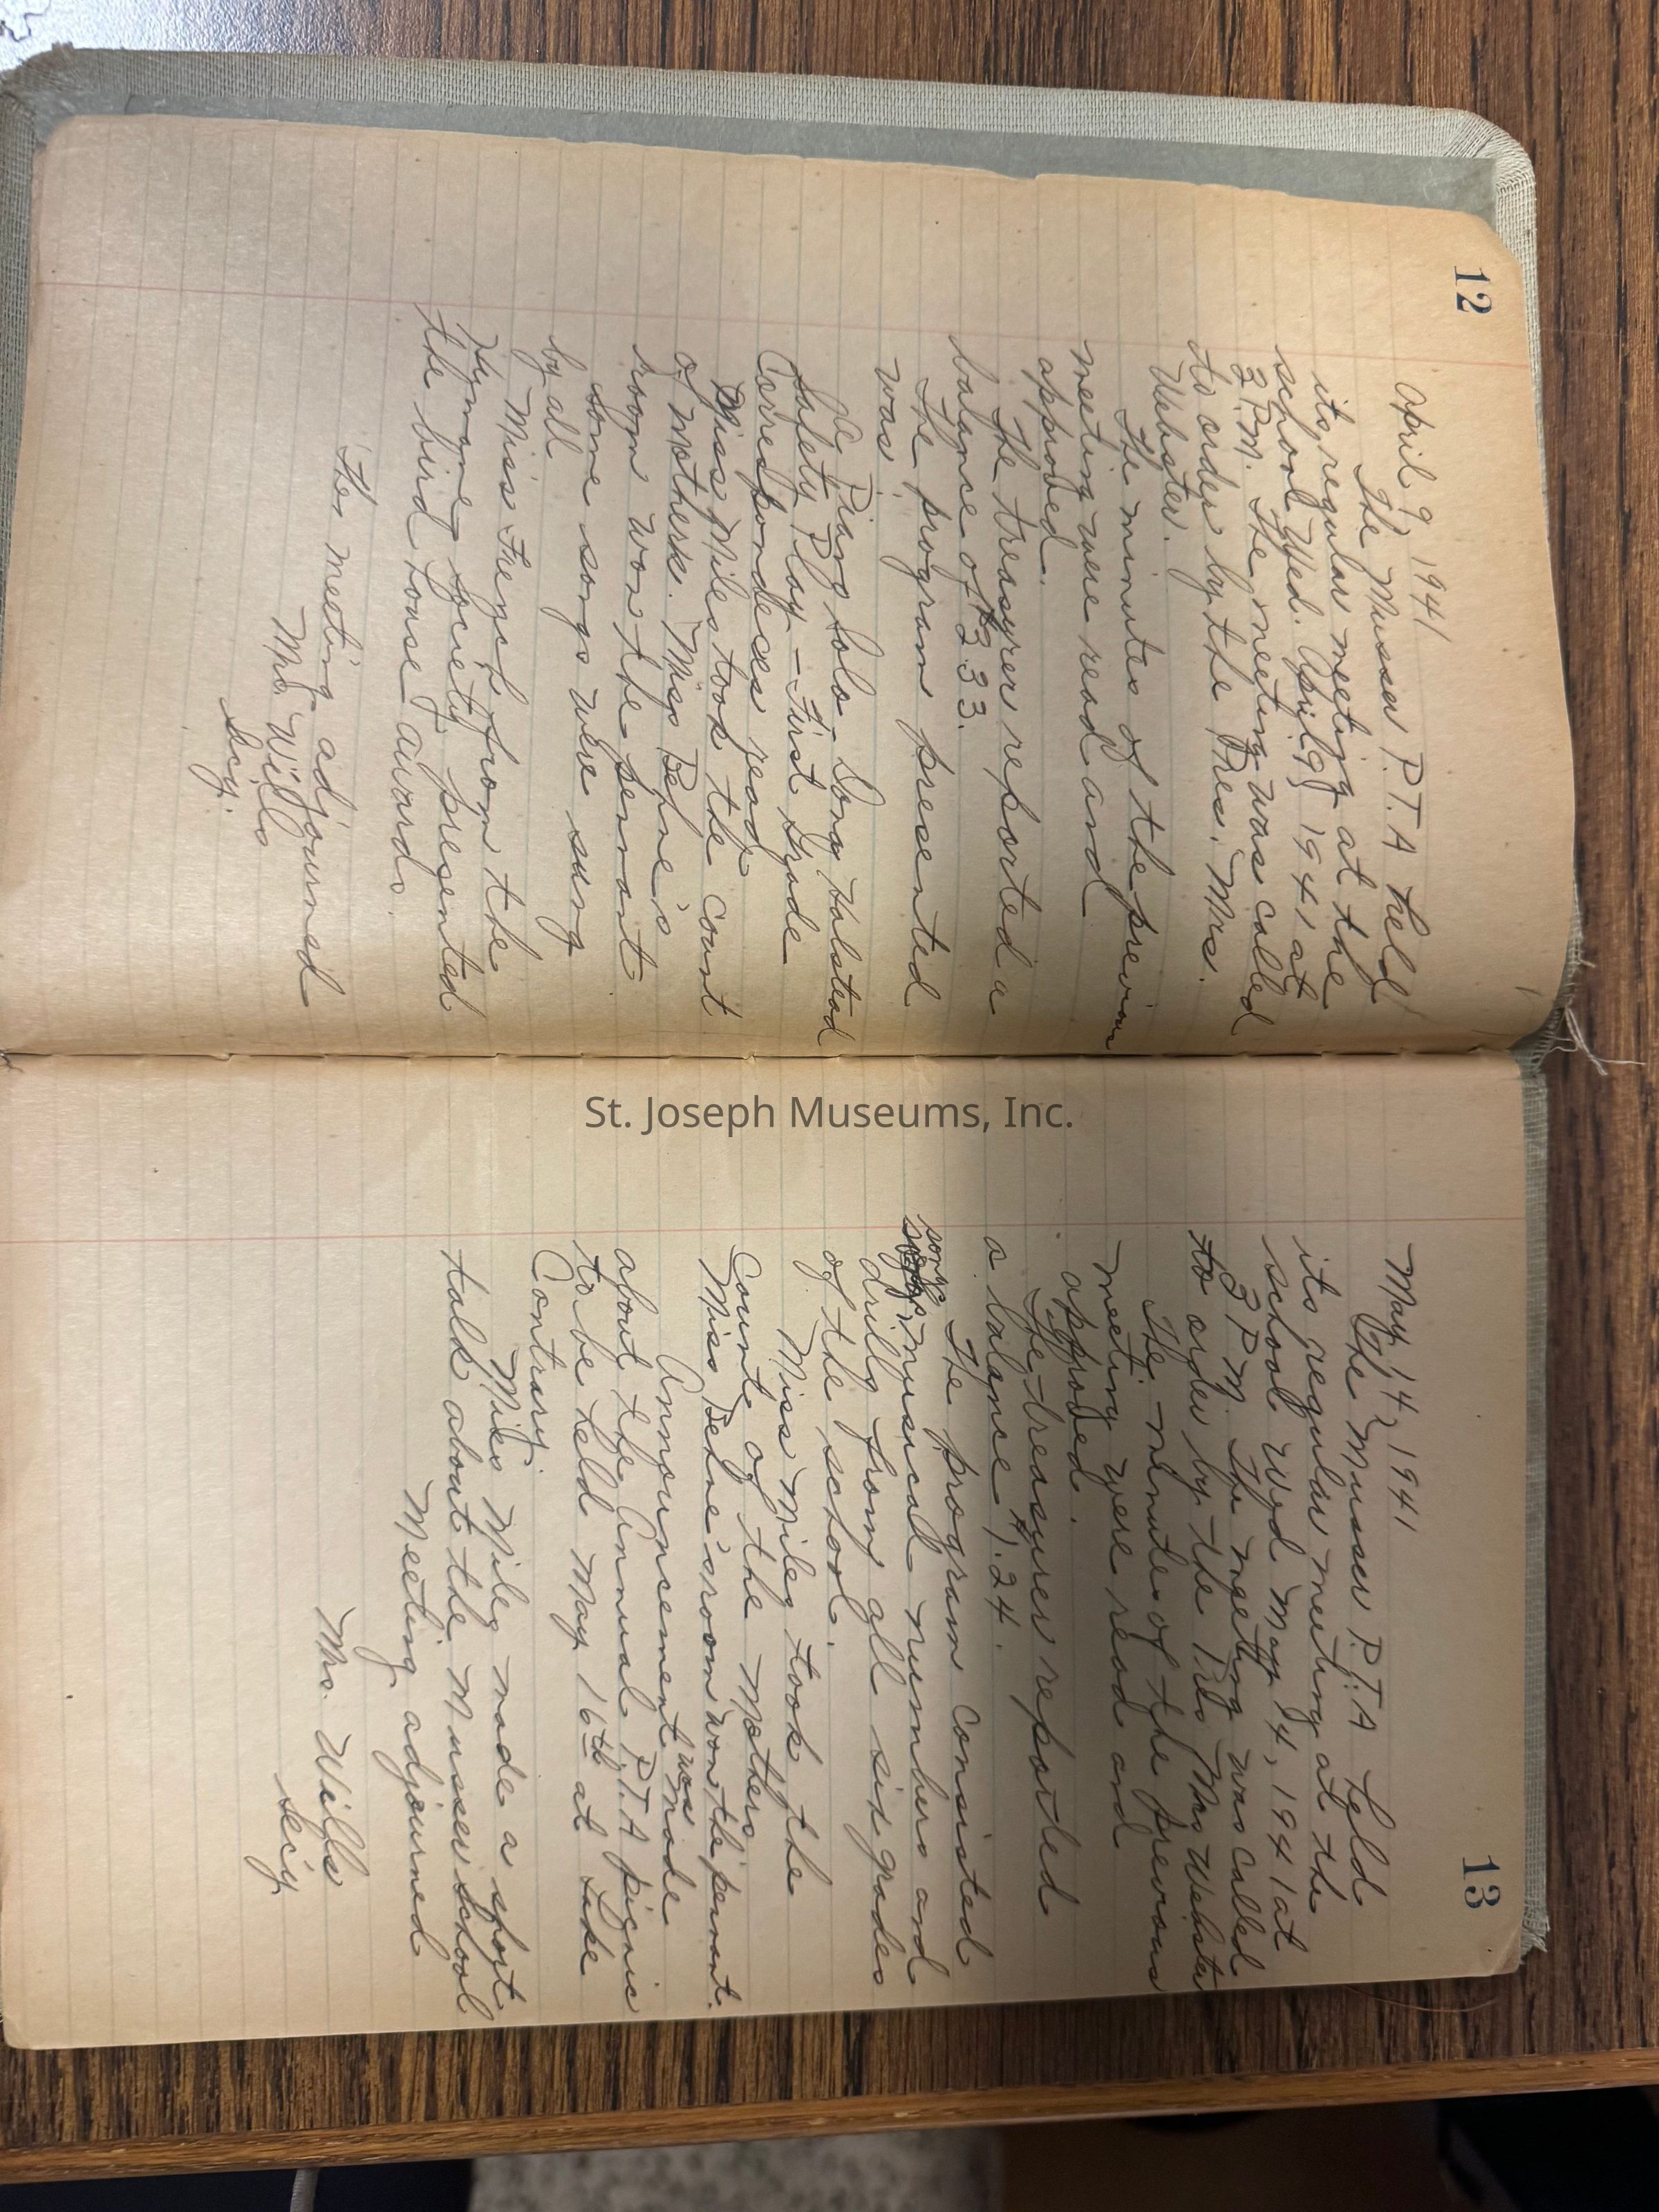 12
April 9, 1941
The Musser P.T.A held
its regular meeting at the
school Wed. April 9, 1941 at
2 P.M. The meeting was called
to order by the Pres. Mrs.
Webster.
The minutes of the previous
meeting were read and
approved.
The treasurer reported a
balance of $2.33.
The program presented
was:
A Piano Solo - Song Halstead
Safety Play - First Grade
Correspondeces read
Miss Miles took the count
of mothers. Miss Behne's
room won the penant
Some songs were sung
by all
Miss French from the
Humane Society presented
the bird house awards.
The meeting adjourned
Mrs. Wills
Secy.
St. Joseph Museums, Inc.
13
May 14, 1941
The Musser P.T.A held
its regular meeting at the
school Wed May 14, 1941 at
2 P.M. The meeting was called
to order by the Pres Mrs Webster
The minutes of the prevous
meeting were read and
approved.
The treasurer reported
a balance $1.24.
The program consisted
songs, musical numbers and
drills from all six grades
of the school.
Miss Miley took the
count of the mothers
Miss Behne's room won the penant.
Announcement was made
about the Annual P.T.A picnic
to be held May 16th at Lake
Contrary.
Miss Miley made a short
talk about the Musser School
Meeting adjourned
Mrs. Wills
Sec'y